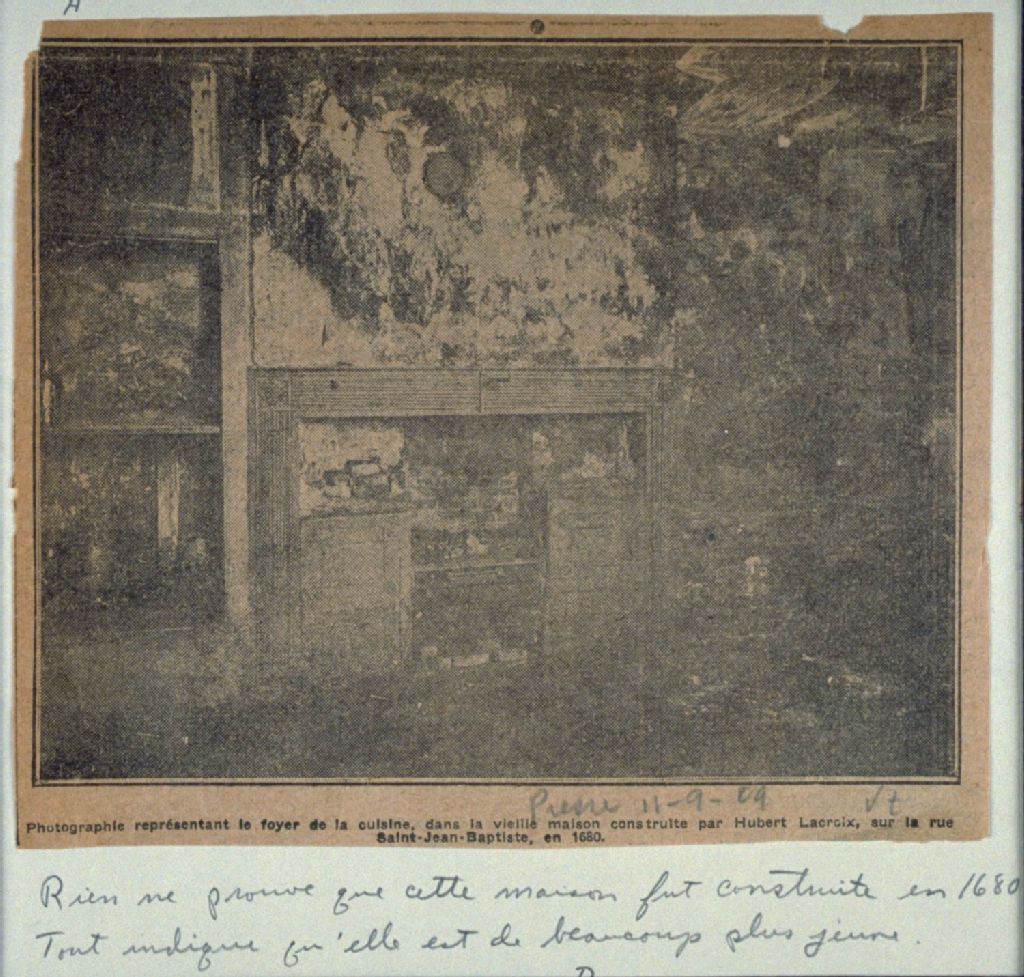 A
Presse 11-9-09 Vt
Photographie représentant le foyer de la cuisine, dans la vieille maison construite par Hubert Lacroix, sur la rue
Saint-Jean-Baptiste, en 1680.
Rien ne prouve que cette maison fut construite en 1680
Tout indique qu'elle est de beaucoup plus jeune.